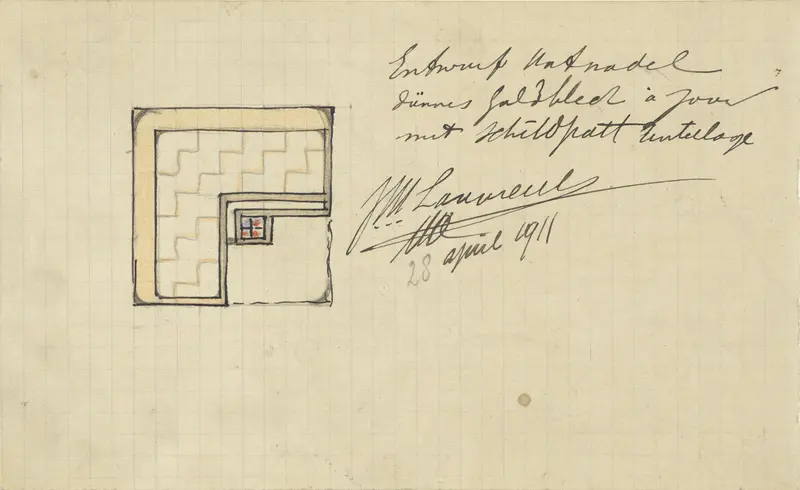 Entwurf Hatnadel
dünnes Goldblech à jour
mit Schildpatt Unterlage
JM Lauweriks
28 april 1911